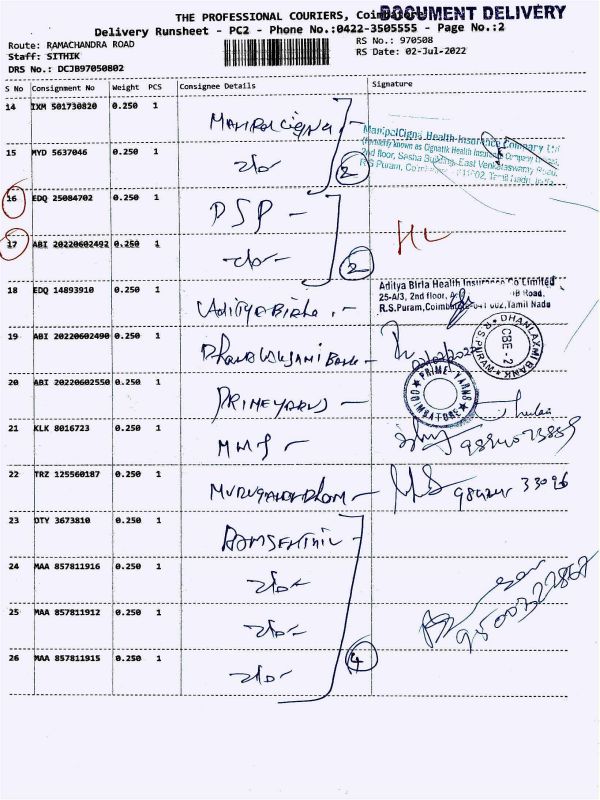 THE PROFESSIONAL COURIERS, Coimbatore
DOCUMENT DELIVERY
Delivery Runsheet - PC2 - Phone No.:0422-3505555 - Page No.:2
Route: RAMACHANDRA ROAD
RS No.: 970508
Staff: SITHIK
RS Date: 02-Jul-2022
DRS No.: DCJB97050802
S No Consignment No Weight PCS Consignee Details Signature
14 IXM 501730820 0.250 1 Manipalcigna
ManipalCigna Health Insurance Company Ltd
(formerly known as Cignattk Health Insurance Company Limited)
2nd floor, Sasha Building, East Venkataswamy Road,
R.S Puram, Coimbatore - 641 002, Tamil Nadu, India
15 MYD 5637046 0.250 1 -do-
2
16 EDQ 25084702 0.250 1 DSP -
17 ABI 20220602492 0.250 1 -do-
2
HL
18 EDQ 14893910 0.250 1 Aditya Birla -
Aditya Birla Health Insurance Co Limited
25-A/3, 2nd floor, DB Road,
R.S.Puram, Coimbatore-641 002, Tamil Nadu
19 ABI 20220602490 0.250 1 Dhanalaxami Bank -
DHANLAXMI BANK
CBE-2
R.S. PURAM
20 ABI 20220602550 0.250 1 PRIMEYARNS -
PRIME YARNS
COIMBATORE
21 KLK 8016723 0.250 1 MMF -
22 TRZ 125560187 0.250 1
23 OTY 3673810 0.250 1 RAMSENTHIL -
24 MAA 857811916 0.250 1 -do-
25 MAA 857811912 0.250 1 -do-
26 MAA 857811915 0.250 1 -do-
4